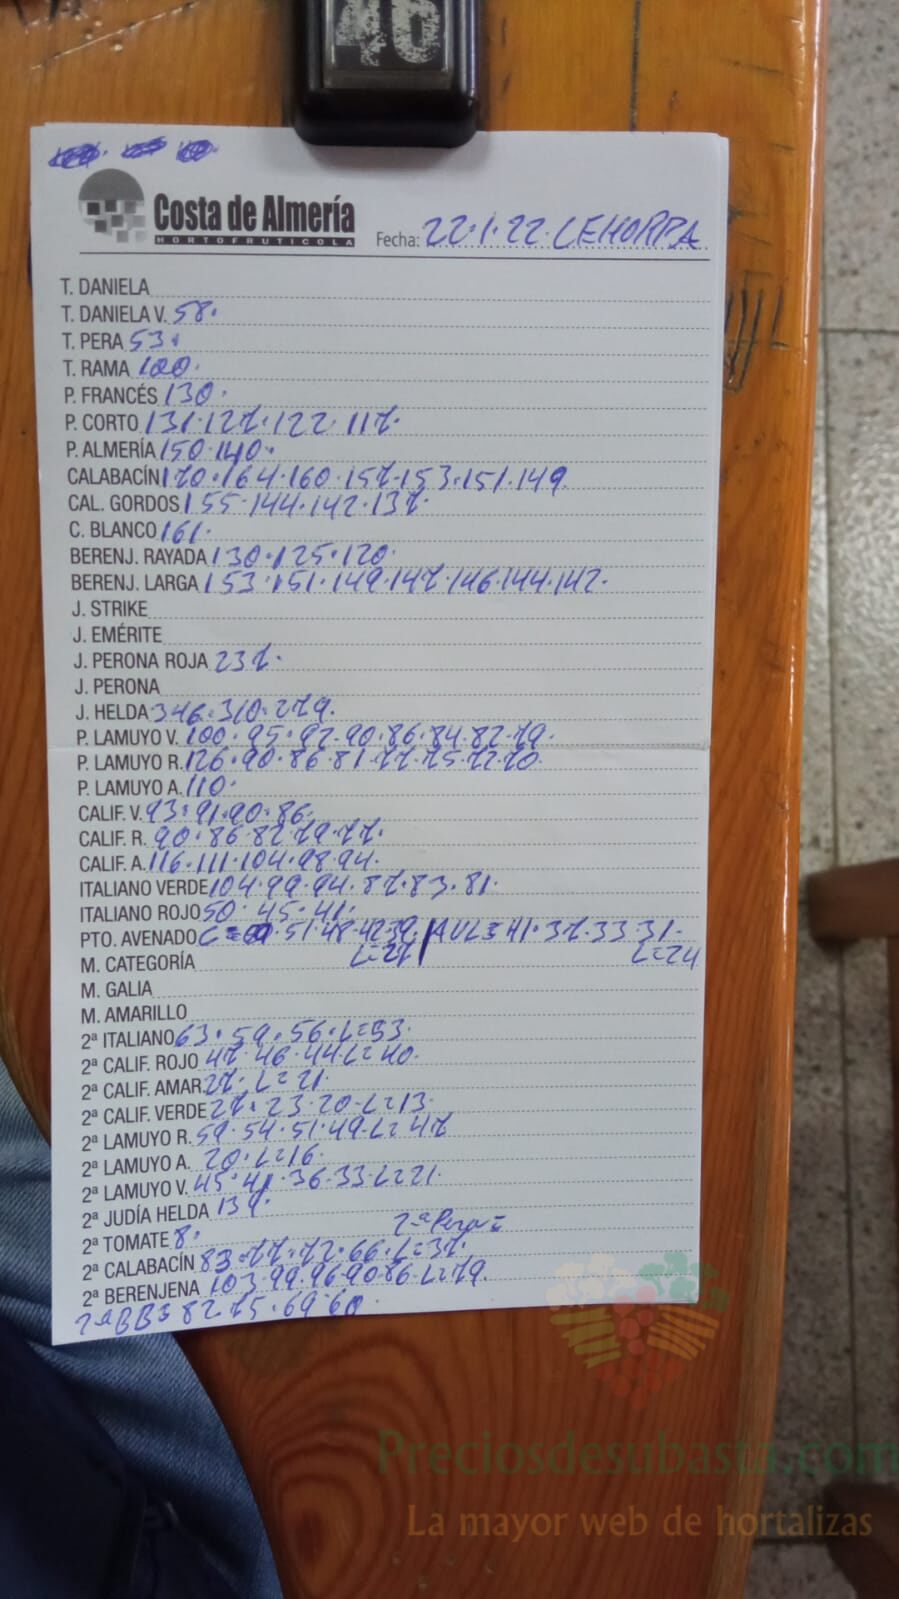 46
Costa de Almería
HORTOFRUTICOLA
Fecha: 22.1.22. CEHORPA
T. DANIELA
T. DANIELA V. 58.
T. PERA 53.
T. RAMA 100.
P. FRANCÉS 130.
P. CORTO 131.127.122.117.
P. ALMERÍA 150.140.
CALABACÍN 170.164.160.157.153.151.149.
CAL. GORDOS 155.144.142.137.
C. BLANCO 161.
BERENJ. RAYADA 130.125.120.
BERENJ. LARGA 153.151.149.147.146.144.142.
J. STRIKE
J. EMÉRITE
J. PERONA ROJA 237.
J. PERONA
J. HELDA 346.310.279.
P. LAMUYO V. 100.95.92.90.86.84.82.79.
P. LAMUYO R. 126.90.86.81.77.75.72.70.
P. LAMUYO A. 110.
CALIF. V. 93.91.90.86.
CALIF. R. 90.86.82.79.77.
CALIF. A. 116.111.104.98.94.
ITALIANO VERDE 104.99.94.87.83.81.
ITALIANO ROJO 50.45.41.
PTO. AVENADO C= 51.48.42.39. / AVL=41.37.33.31.
M. CATEGORÍA L=27 L=24
M. GALIA
M. AMARILLO
2ª ITALIANO 63.59.56.L=53.
2ª CALIF. ROJO 47.46.44.L=40.
2ª CALIF. AMAR. 27. L=21.
2ª CALIF. VERDE 27.23.20.L=13.
2ª LAMUYO R. 59.54.51.49.L=47
2ª LAMUYO A. 20.L=16.
2ª LAMUYO V. 45.41.36.33.L=21.
2ª JUDÍA HELDA 139.
2ª TOMATE 8. 2ª Pera=
2ª CALABACÍN 83.77.72.66.L=37.
2ª BERENJENA 103.99.96.90.86.L=79.
2ªBB= 82.75.69.60.
Preciosdesubasta.com
La mayor web de hortalizas